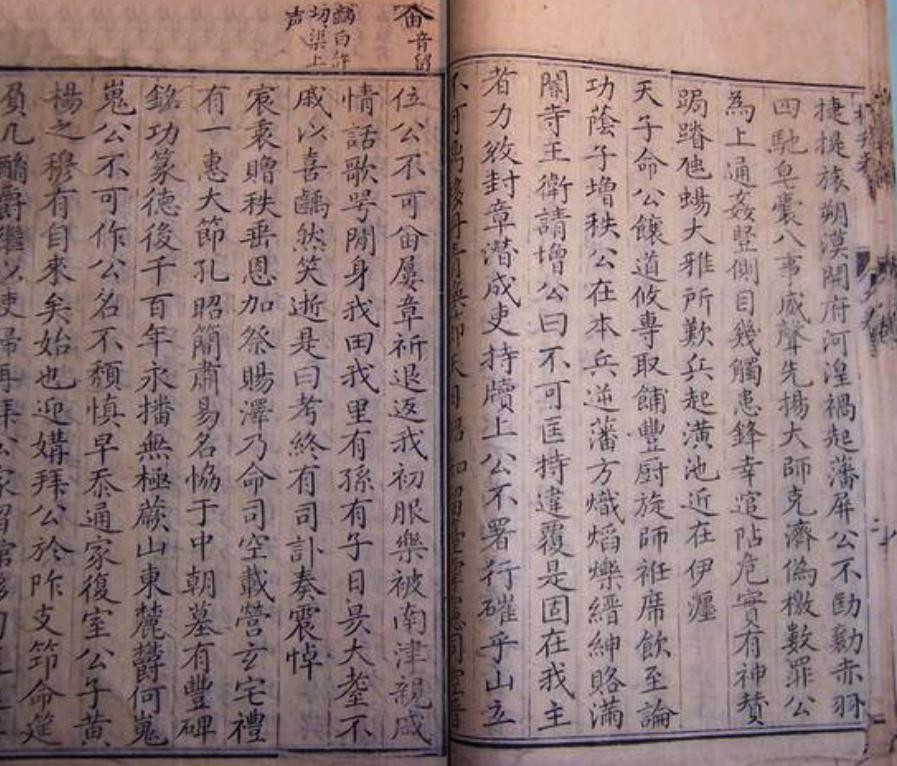 捷提旅朔漠開府河湟禍起藩屏公不劻勷赤羽
四馳皂囊八事威聲先揚大師克濟偽檄數罪公
為上通姦豎側目幾觸患鋒幸逭阽危實有神贊
跼蹐虺蜴大雅所歎兵起潢池近在伊瀍
天子命公饟道攸專取餔豐厨旋師袵席飲至論
功蔭子增秩公在本兵逆藩方熾焰爍縉紳賂滿
闇寺王衛請增公曰不可匡持違覆是固在我主
者力救封章潛成吏持牘上公不署行確乎山立
不可
位公不可畱屢章祈退返我初服樂被南津親戚
情話歌咢閒身我田我里有孫有子日昃大耋不
戚以喜齲然笑逝是曰考終有司訃奏震悼
宸衷贈秩垂恩加祭賜澤乃命司空載營玄宅禮
有一惠大節孔昭簡肅易名恊于中朝墓有豐碑
銘功篆德後千百年永播無極蕨山東麓欝何嵬
嵬公不可作公名不頽慎早忝通家復室公子黄
楊之穆有自來矣始也迎媾拜公於阼支笻命筵
畱
音
切渠上
声